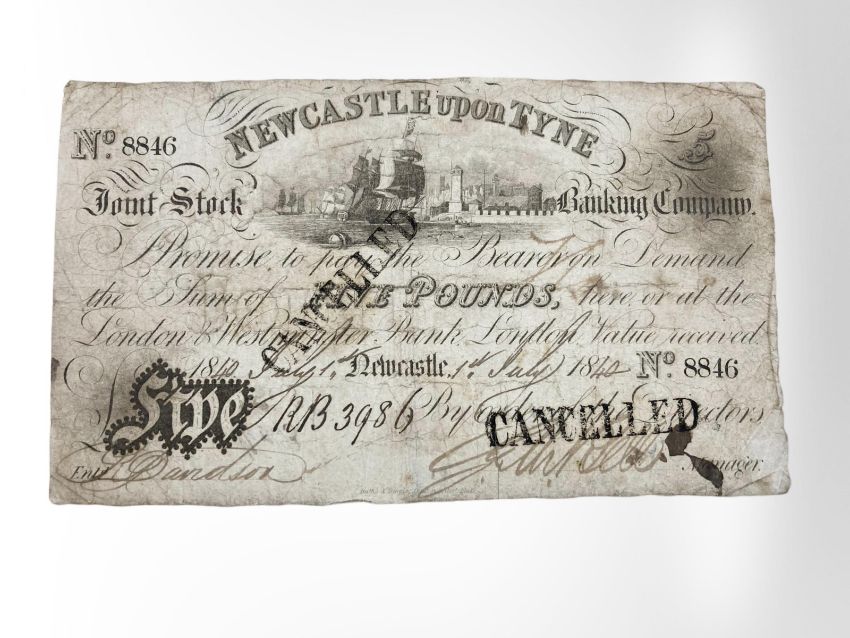 NEWCASTLE upon TYNE
Nº 8846
5
Joint Stock Banking Company.
I Promise to pay the Bearer on Demand
the Sum of FIVE POUNDS, here or at the
London & Westminster Bank, London Value received
1840 July 1st Newcastle 1st July 1840 Nº 8846
Five RB 3986 By order of Directors
CANCELLED
CANCELLED
Entd Davidson Manager.